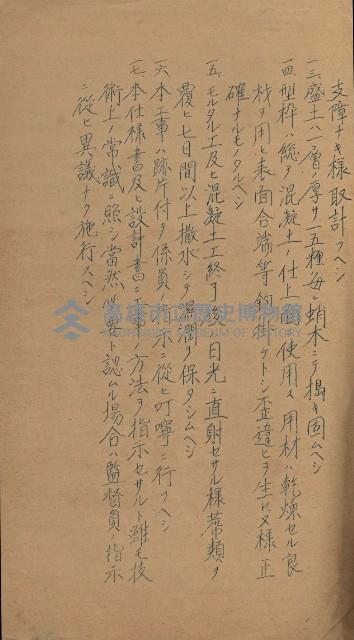 支障ナキ様取計フヘシ
一三、盛土ハ一層ノ厚サ一五糎毎ニ蛸木ニテ搗キ固ムヘシ
一四、型枠ハ總テ混凝土ノ仕上面ニ使用ス用材ハ乾燥セル良
材ヲ用ヒ表面合端等鉋掛ケトシ歪違ヒヲ生セヌ様正
確ナルモノタルヘシ
一五、モルタル工及ヒ混凝土工終ラハ後ハ日光ニ直射セサル様蓆類ヲ
覆ヒ七日間以上撒水シテ濕潤ヲ保タシムヘシ
一六、本工事ハ跡片付ヲ係員ノ指示ニ從ヒ叮嚀ニ行フヘシ
一七、本仕様書及ヒ設計書ニ工事ノ方法ヲ指示セサルト雖モ技
術上ノ常識ニ照シ當然必要ト認ムル場合ハ監督員ノ指示
ニ從ヒ異議ナク施行スヘシ
高雄市立歷史博物館
KAOHSIUNG MUSEUM OF HISTORY